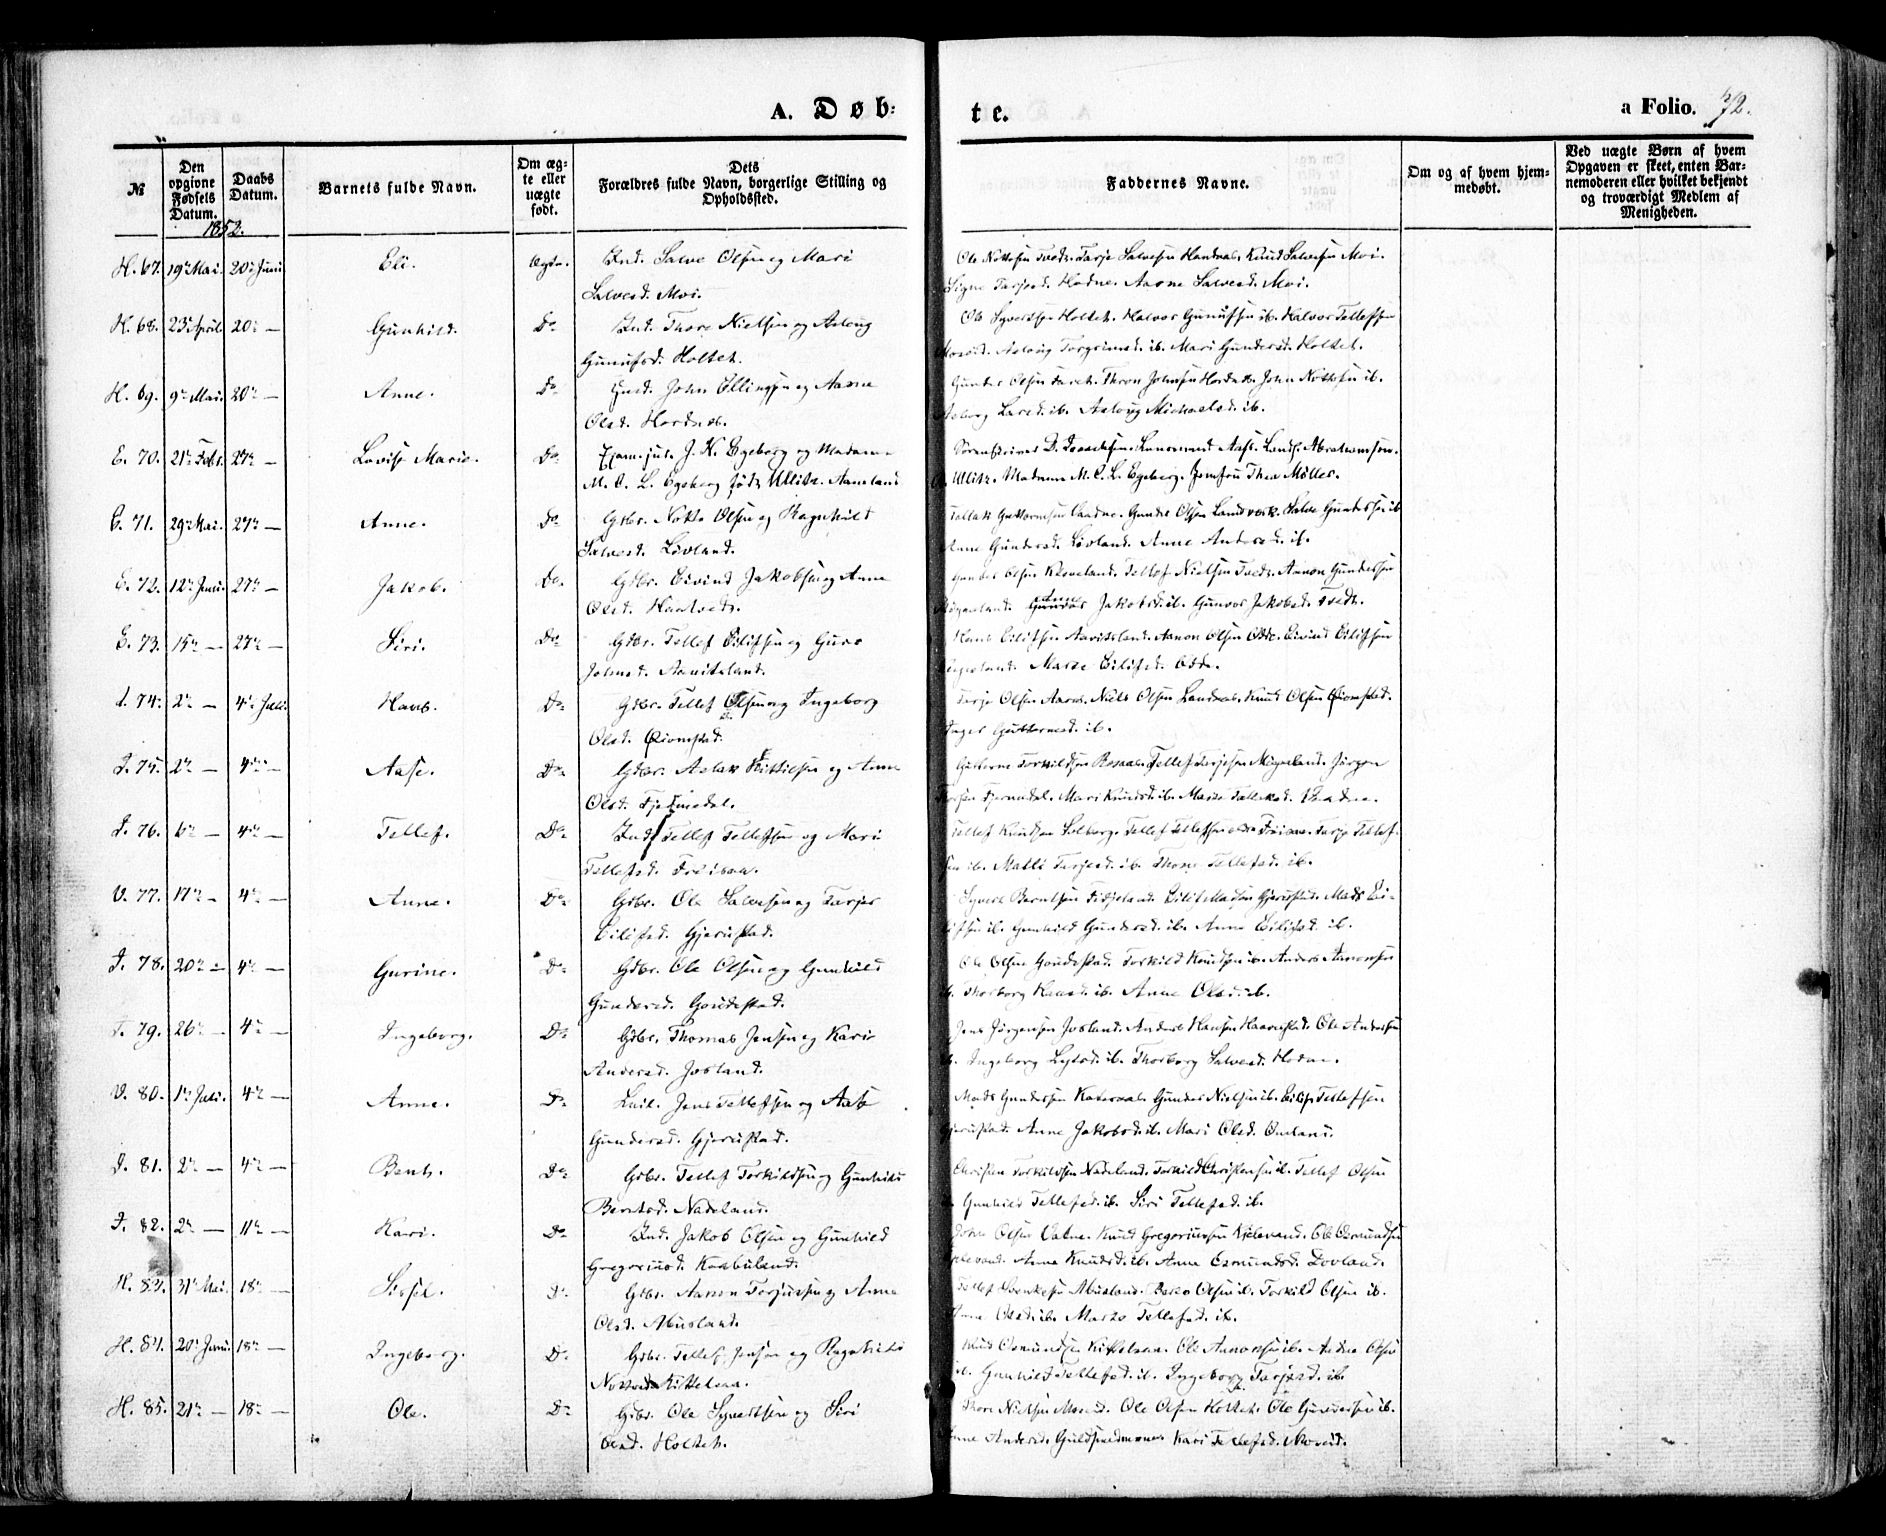 A. Døb: te. a Folio. 72.
№
Den opgivne Fødsels Datum.
Daabs Datum.
Barnets fulde Navn.
Om ægte eller uægte født.
Dets Forældres fulde Navn, borgerlige Stilling og Opholdssted.
Faddernes Navne.
Om og af hvem hjemmedøbt.
Ved uægte Børn af hvem Opgaven er skeet, enten Barnemoderen eller hvilket bekjendt og troværdigt Medlem af Menigheden.
1852.
H. 67. 19de Mai. 20de Juni Eli. Ægte. Ind. Salve Olsen og Mari
Salvesd. Moi.
Signe Tarjesd. Hodne. Aasne Salvesd. Moi.
H. 68. 23de April 20de — Gunhild. Do Ind. Thore Nielsen og Aslaug
Gunufsd. Holtet.
Ole Syvertsen Holtet. Halvor Gunufsen ib. Halvor Tellefsen
Aslaug Torgrimsd. ib. Mari Gundersd. Holtet.
H. 69. 9de Mai. 20de — Anne. Do John Ellingsen og Aasne
Olsd. Hordnes.
Gunder Olsen Thron Johnsen Hordnes. John Nottosen ib.
Larsd. ib. Aslaug Michaelsd. ib.
E. 70. 21de Febr. 27de — Lovise Marie. Do J. N. Egeberg og Madame
M. C. L. Egeberg født Ullitz. Aaneland
Ullitz. Madame M. C. L. Egeberg. Jomfru Thea Møller.
E. 71. 29de Mai. 27de — Anne. Do Gdbr. Notto Olsen og Ragnhild
Salvesd. Løvland.
Gunder Olsen Landsverk. Salve Gundersen ib
Anne Gundersd. Løvland. Anne Andersd. ib.
E. 72. 12te Juni. 27de — Jakob. Do Gdbr. Eivind Jakobsen og Anne
Olsd.
Gunder Olsen Kleveland. Tellef Nielsen Tvedt. Aanon Gundersen
Anne Jakobsd. ib. Gunvor Jakobsd. Tvedt.
E. 73. 15de — 27de — Siri. Do Gdbr. Tellef Eilifsen og Guro
Johnsd. Aavitsland.
Eilifsen Aavitsland. Aanon Olsen Odde. Eivind Eilifsen
Marte Eilifsd. Odde.
74. 2de — 4de Juli. Hans. Do Gdbr. Tellef Olsen og Ingeborg
Olsd. Qvomstad.
Tarje Olsen Aaros. Niels Olsen Landaas. Knud Olsen Qvomstad.
Inger Guttormsd. ib.
I. 75. 2de — 4de — Aase. Do Gdbr. Aslak Kittilsen og Anne
Olsd. Fjermedal.
Guttorm Torkildsen Tellef Terjesen Jørgen
Fjermedal. Mari Knudsd. ib. Marte Tellefsd.
I. 76. 6te — 4de — Tellef. Do Ind. Tellef Tellefsen og Mari
Tellefsd. Freisaa.
Tellef Knudsen Solberg. Tellef Tellefsen Tarje Tellef-
sen ib. Malli Tarjesd. ib. Thone Tellefsd. ib.
V. 77. 17de — 4de — Anne. Do Gdbr. Ole Salvesen og Tarjer
Eilifsd. Gjerustad.
Syvert Berntsen Fidjeland. Eilif Madsen Gjerustad. Mads Ei-
lifsen ib. Gunhild Gundersd. ib. Anne Eilifsd. ib.
I. 78. 20de — 4de — Gurine. Do Gdbr. Ole Olsen og Gunhild
Gundersd. Goudestad.
Ole Olsen Goudestad. Torkild Knudsen ib. Anders Aanonsen
ib. Thorborg ib. Anne Olsd. ib.
79. 26de — 4de — Ingeborg. Do Gdbr. Thomas Jensen og Kari
Andersd. Josland.
Jens Jørgensen Josland. Anders Hansen Haavestad. Ole Andersen
ib. Ingeborg ib. Thorborg Salvesd. Hodne.
V. 80. 1de Juli. 4de — Anne. Do Jens Tellefsen og Aase
Gundersd. Gjerustad.
Mads Gundersen Gunder Nielsen ib. Eilif Tellefsen
Gjerustad. Anne Jakobsd. ib. Mari Olsd. Omland.
I. 81. 2de — 4de — Bent. Do Gdbr. Tellef Torkildsen og Gunhild
Berntsd. Nadeland.
Christen Torkildsen Nadeland. Torkild Christensen ib. Tellef Olsen
ib Gunhild Tellefsd. ib. Siri Tellefsd. ib.
I. 82. 2de — 11te — Kari. Do Ind. Jakob Olsen og Gunhild
Gregoriusd. Kaabuland.
John Olsen Vatne. Knud Gregoriussen Kjelevand. Ole Osmundsen
Kjelevand. Anne Knudsd. ib. Anne Osmundsd. Dovland.
H. 83. 31te Mai. 18de — Sissel. Do Gdbr. Aanon Terjussen og Anne
Olsd. Abusland.
Tellef Svenkesen Abusland. Olsen ib. Torkild Olsen ib.
Anne Olsd. ib. Marte Tellefsd. ib.
H. 84. 20de Juni. 18de — Ingeborg. Do Gdbr. Tellef Jensen og Ragnhild
Nottosd. Kittelsaa.
Knud Osmundsen Kittelsaa. Ole Aanonsen ib. Anders Olsen
ib. Gunhild Tellefsd. ib. Ingeborg Tarjesd. ib.
H. 85. 21de — 18de — Ole. Do Gdbr. Ole Syvertsen og Siri
Olsd. Holtet.
Thore Nielsen Moseid. Ole Olsen Holtet. Ole Gundersen ib.
Anne Andersd. Guldsmedmoen. Kari Tellefsd. Moseid.